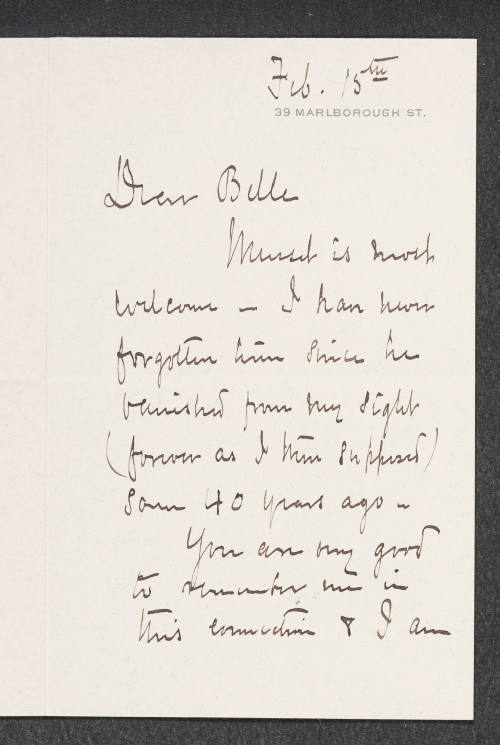 Feb. 15th
39 MARLBOROUGH ST.
Dear Belle
Musset is most
welcome - I have never
forgotten him since he
vanished from my sight
(forever as I then supposed)
some 40 years ago -
You are very good
to remember me in
this connection & I am